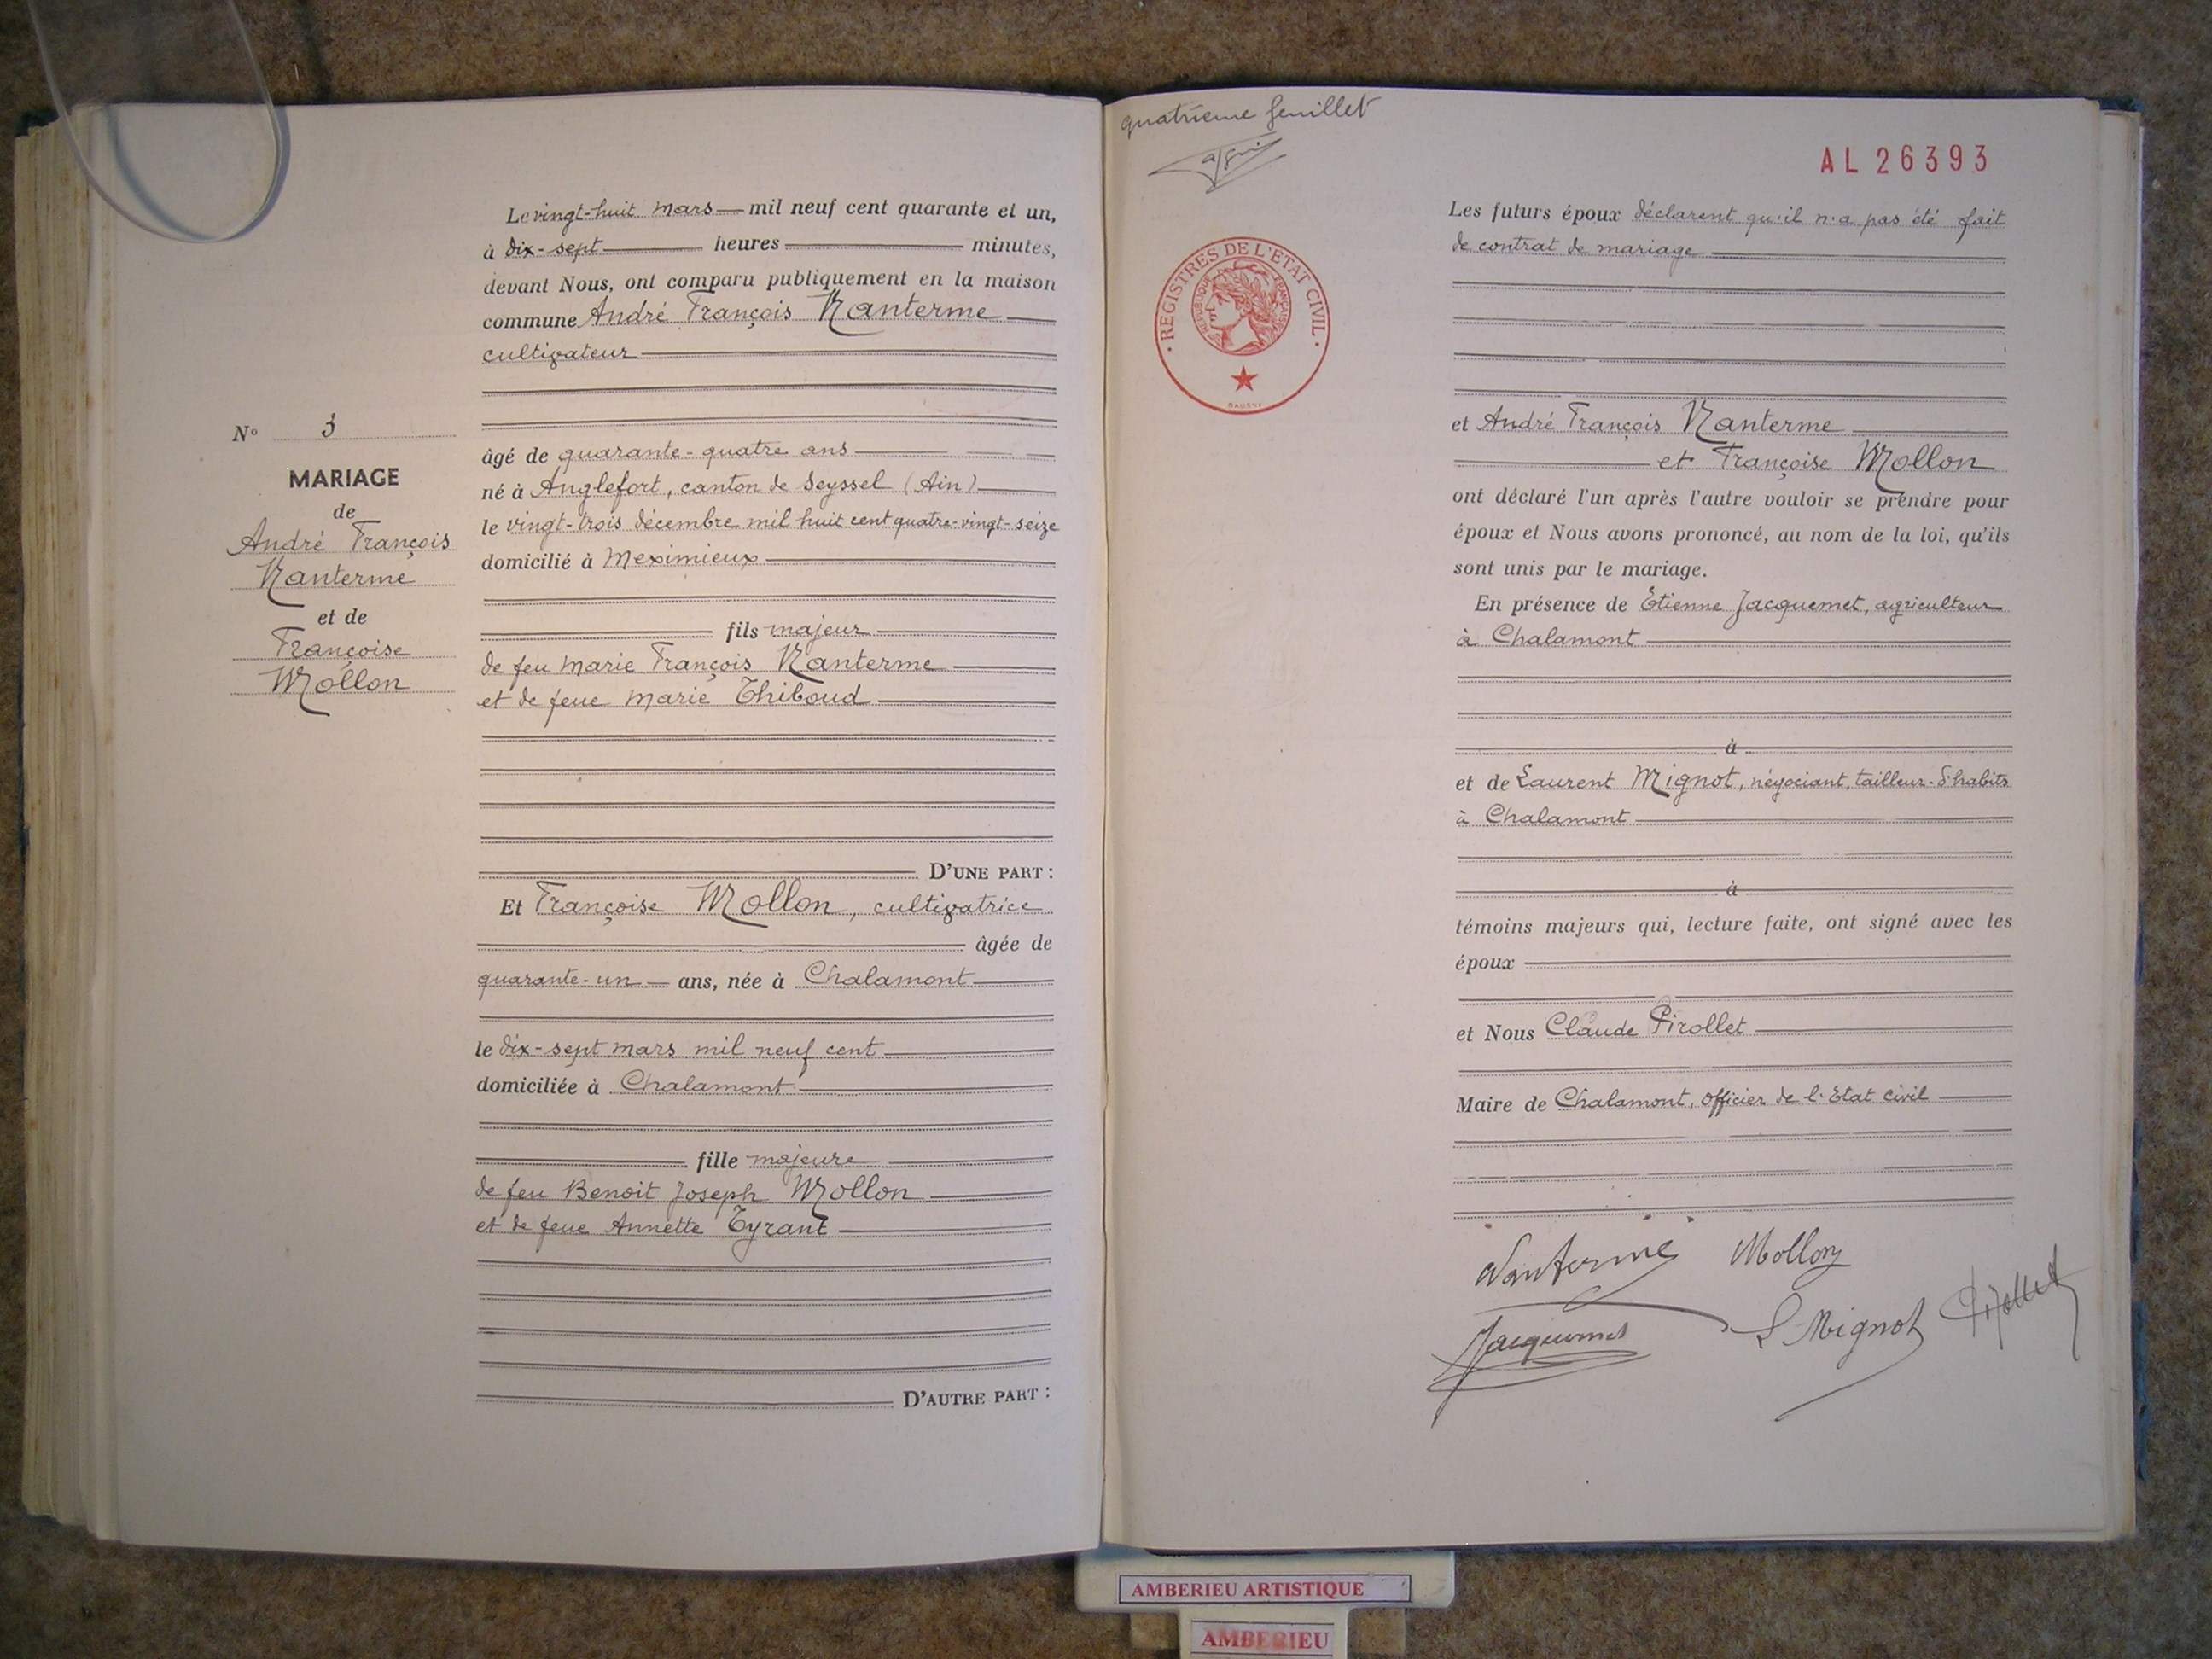 Le vingt-huit mars mil neuf cent quarante et un,
à dix-sept heures minutes,
devant Nous, ont comparu publiquement en la maison
commune André François Nanterme
cultivateur
N° 3
MARIAGE
de
André François
Nanterme
et de
Françoise
Mollon
âgé de quarante-quatre ans
né à Anglefort, canton de Seyssel (Ain)
le vingt-trois décembre mil huit cent quatre-vingt-seize
domicilié à Meximieux
fils majeur
de feu Marie François Nanterme
et de feue Marie Thiboud
D'UNE PART :
Et Françoise Mollon, cultivatrice
âgée de
quarante-un ans, née à Chalamont
le dix-sept mars mil neuf cent
domiciliée à Chalamont
fille majeure
de feu Benoit Joseph Mollon
et de feue Annette Tyrant
D'AUTRE PART :
quatrième feuillet
AL 26393
REGISTRES DE L'ETAT CIVIL
REPUBLIQUE FRANÇAISE
Les futurs époux déclarent qu'il n'a pas été fait
de contrat de mariage
et André François Nanterme
et Françoise Mollon
ont déclaré l'un après l'autre vouloir se prendre pour
époux et Nous avons prononcé, au nom de la loi, qu'ils
sont unis par le mariage.
En présence de Etienne Jacquemet, agriculteur
à Chalamont
à
et de Laurent Mignot, négociant, tailleur-d'habits
à Chalamont
à
témoins majeurs qui, lecture faite, ont signé avec les
époux
et Nous Claude Pirollet
Maire de Chalamont, officier de l'Etat civil
Nanterme Mollon
Jacquemet L Mignot Pirollet
AMBERIEU ARTISTIQUE
AMBERIEU